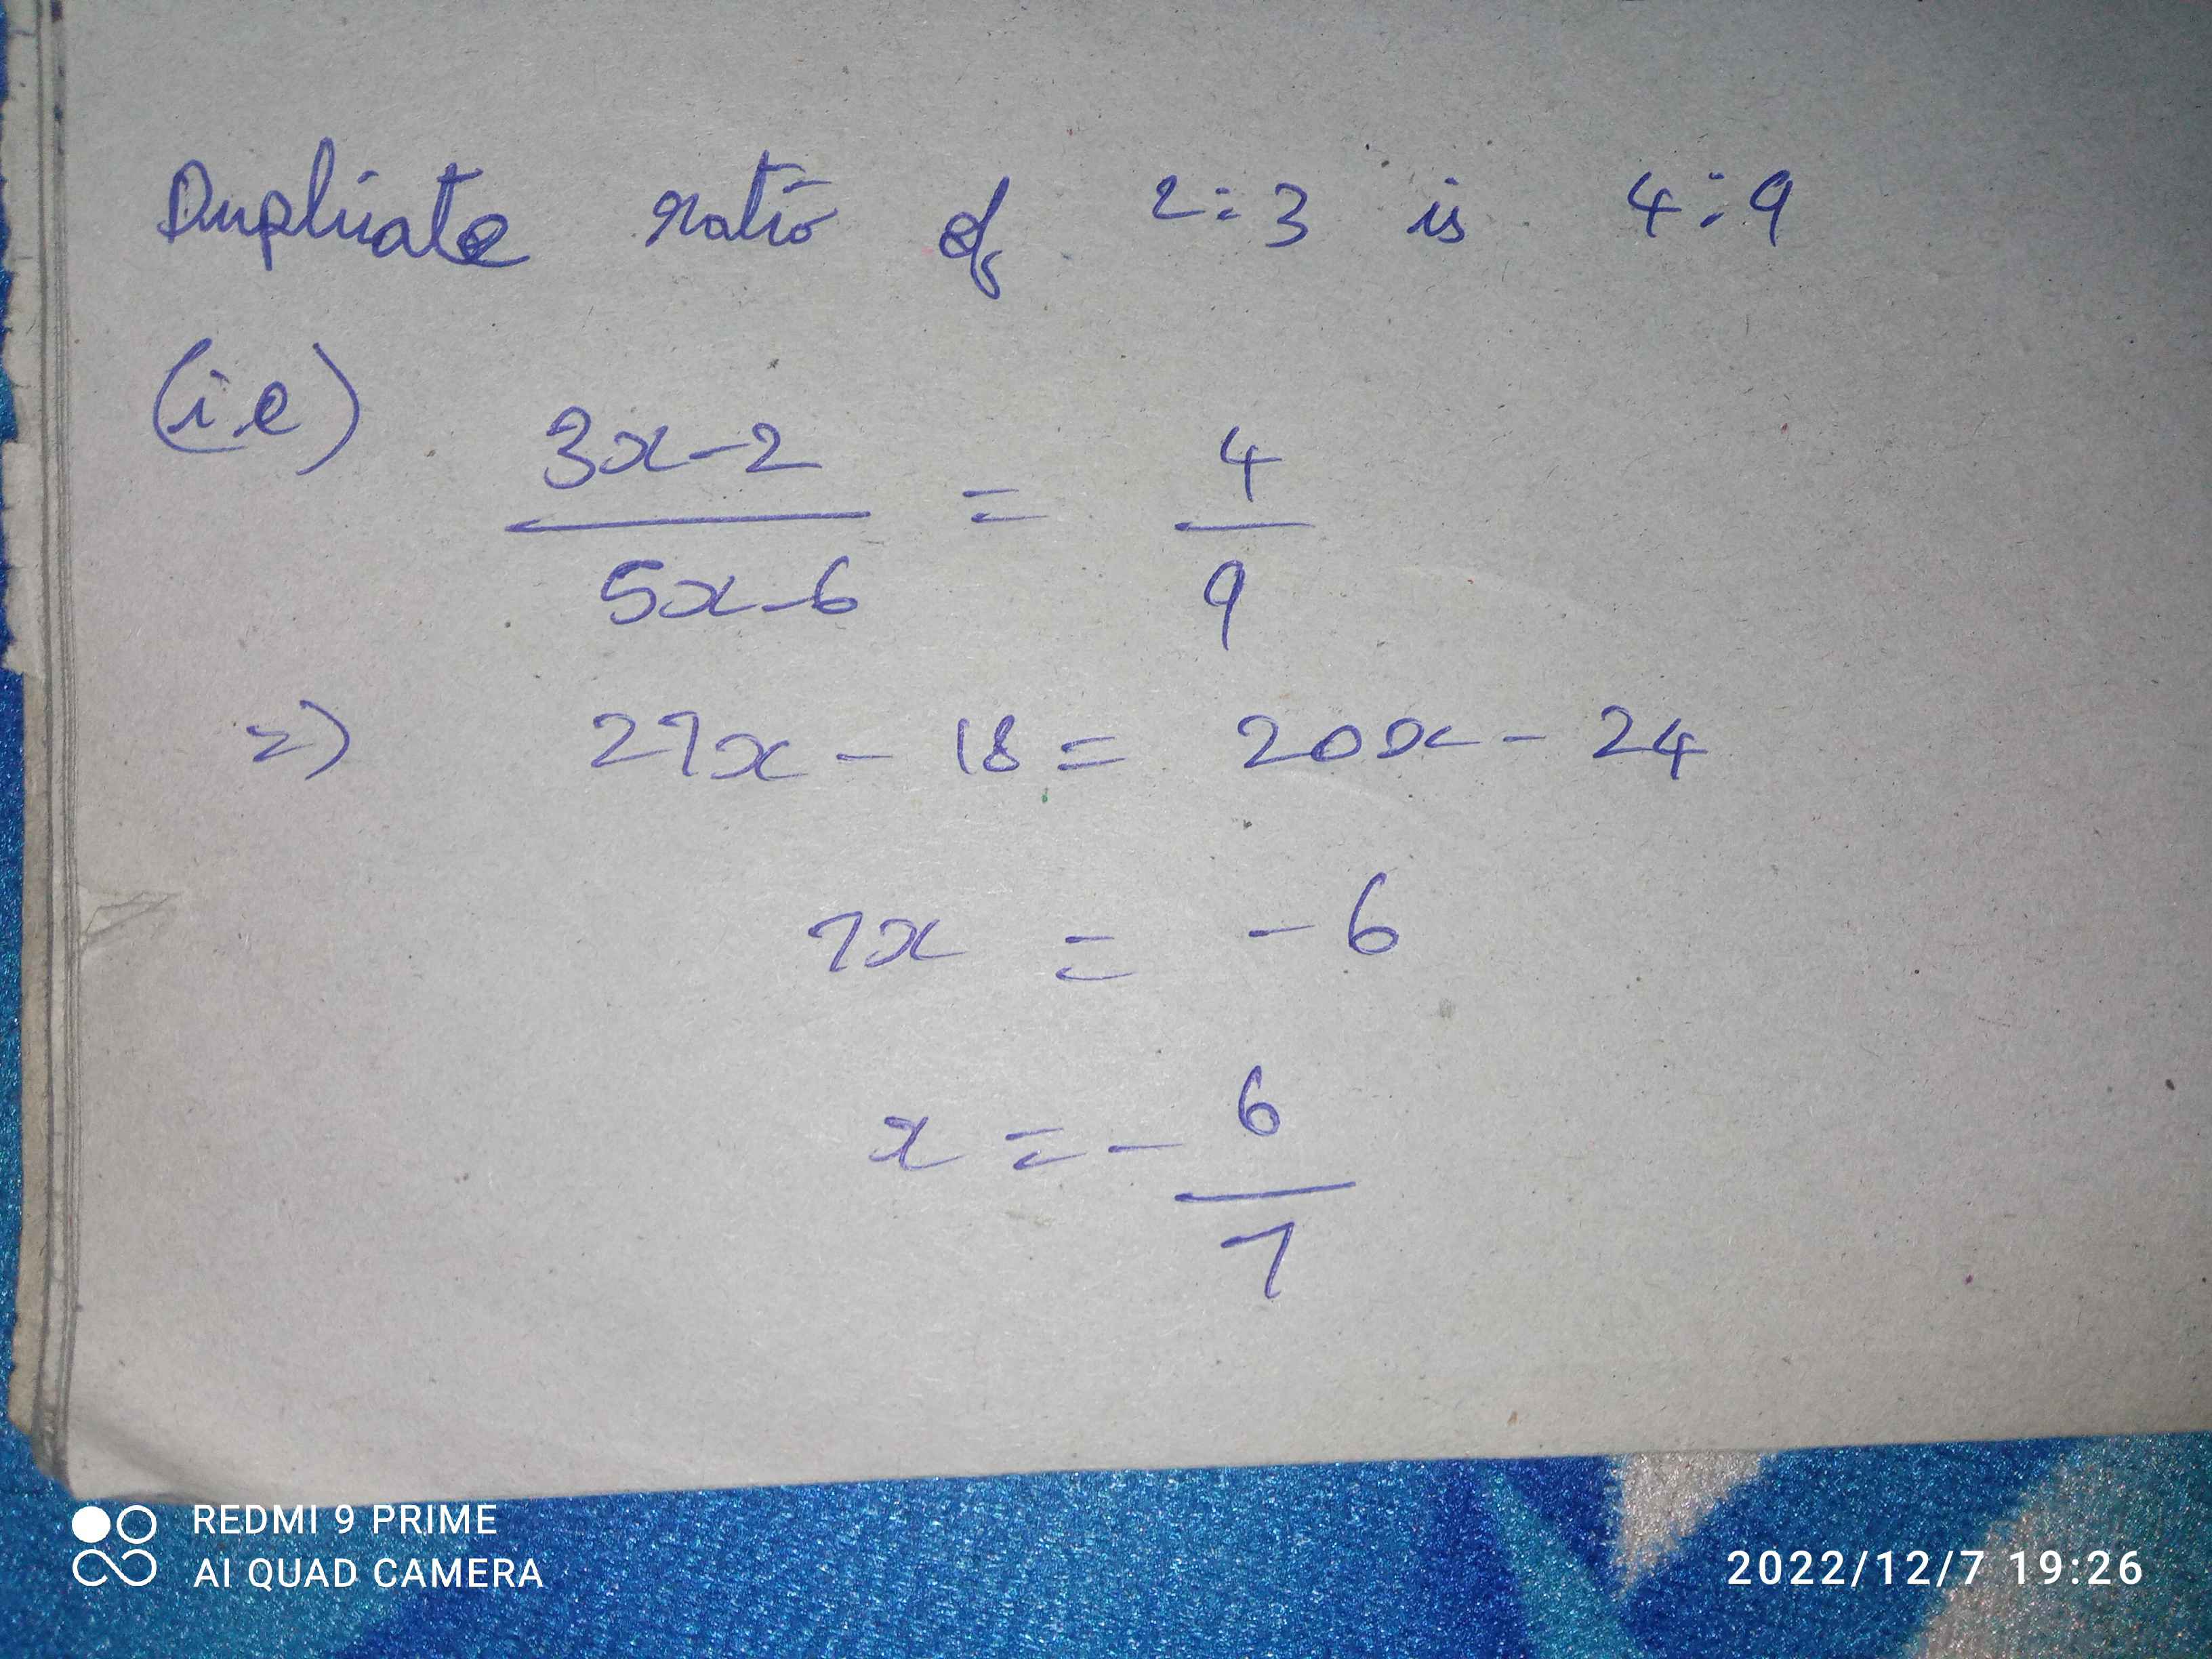 Duplicate ratio of 2:3 is 4:9
(i.e) 3x-2 / 5x-6 = 4 / 9
=) 27x - 18 = 20x - 24
7x = -6
x = - 6 / 7
REDMI 9 PRIME
AI QUAD CAMERA
2022/12/7 19:26